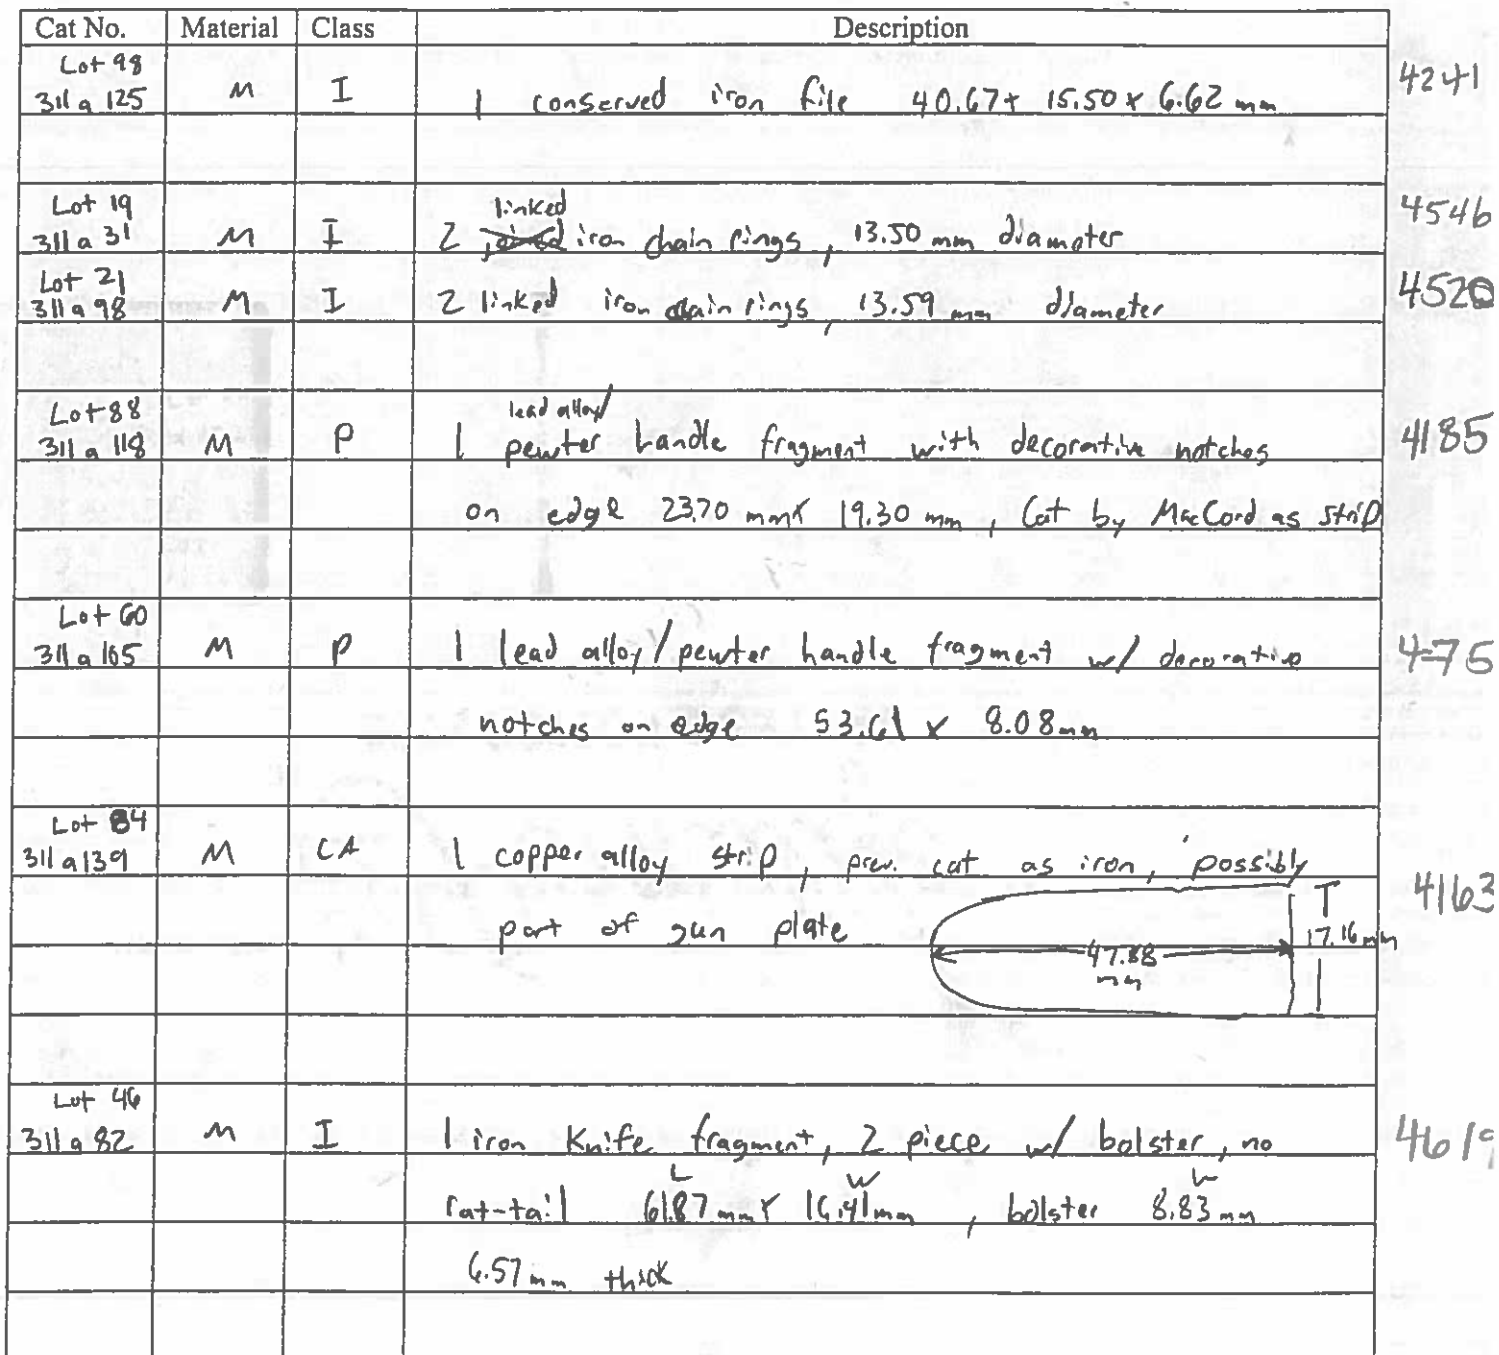 Cat No. Material Class Description
Lot 98
311 a 125 M I 1 conserved iron file 40.67 x 15.50 x 6.62 mm 4241
Lot 19 linked
311 a 31 M I 2 iron chain rings, 13.50 mm diameter 4546
Lot 21
311 a 98 M I 2 linked iron chain rings, 13.59 mm diameter 4520
Lot 88 lead alloy/
311 a 118 M P 1 pewter handle fragment with decorative notches 4185
on edge 23.70 mm x 19.30 mm, Cat by MacCord as strip
Lot 60
311 a 165 M P 1 lead alloy/pewter handle fragment w/ decorative 475
notches on edge 53.61 x 8.08 mm
Lot 84
311 a 139 M CA 1 copper alloy strip, prev. cat as iron, possibly 4163
part of gun plate 47.88 mm 17.16 mm
Lot 46
311 a 82 M I 1 iron Knife fragment, 2 piece w/ bolster, no 4619
L W
rat-tail 61.87 mm x 16.41 mm, bolster 8.83 mm
6.57 mm thick